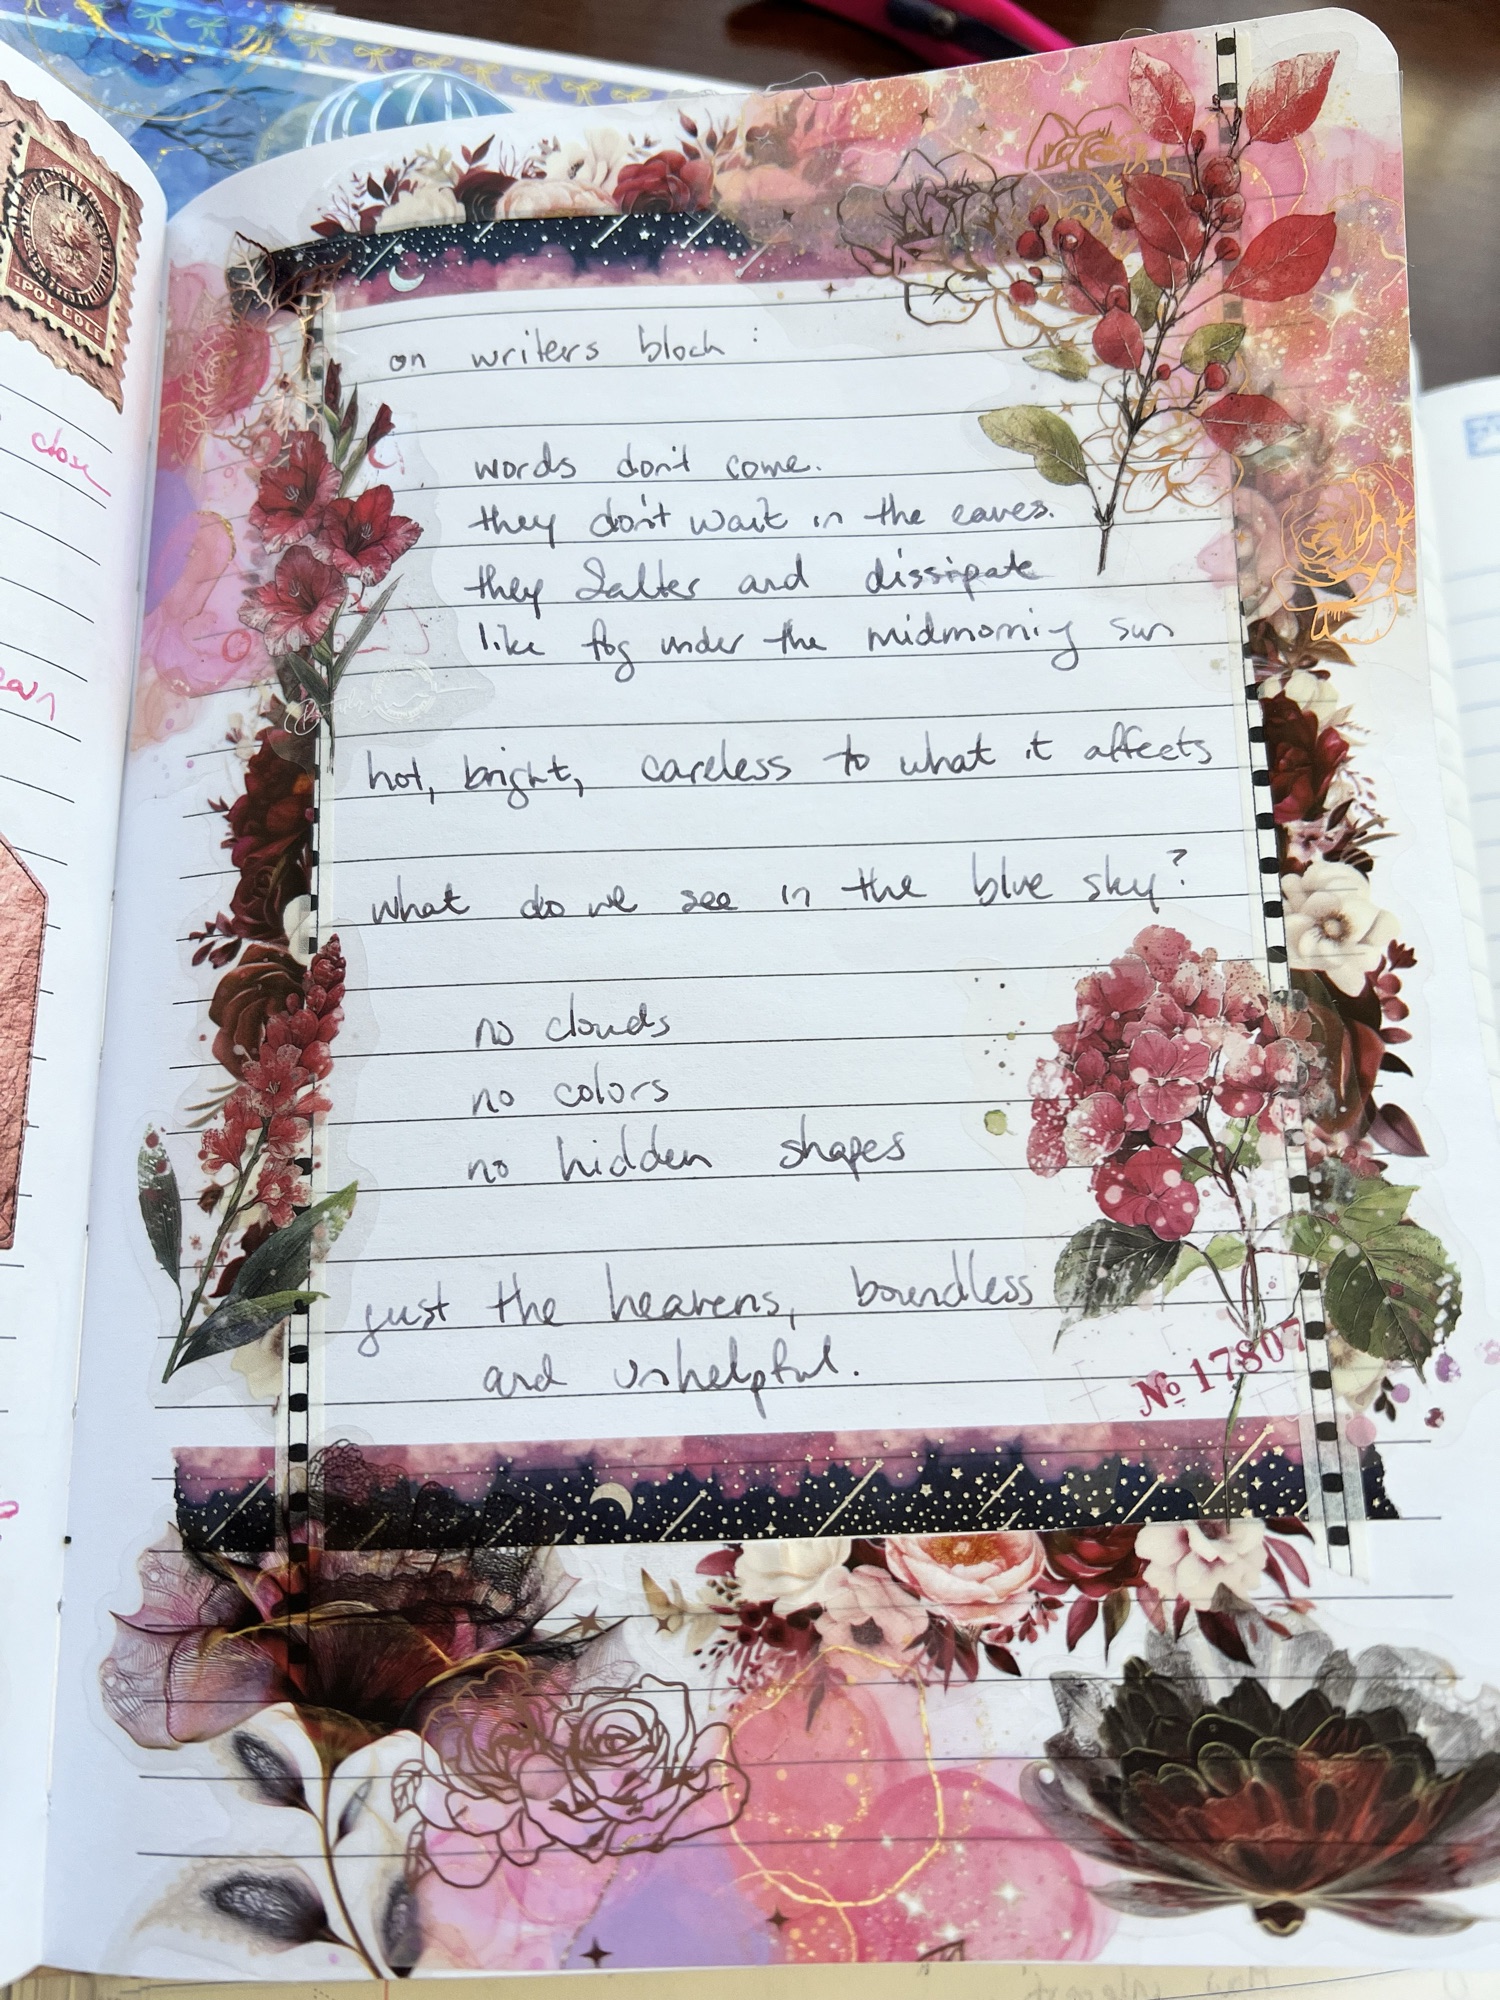 POL
close
on writers block:
words don't come.
they don't wait in the eaves.
they falter and dissipate
like fog under the midmorning sun
hot, bright, careless to what it affects
what do we see in the blue sky?
no clouds
no colors
no hidden shapes
just the heavens, boundless
and unhelpful.
№ 17807